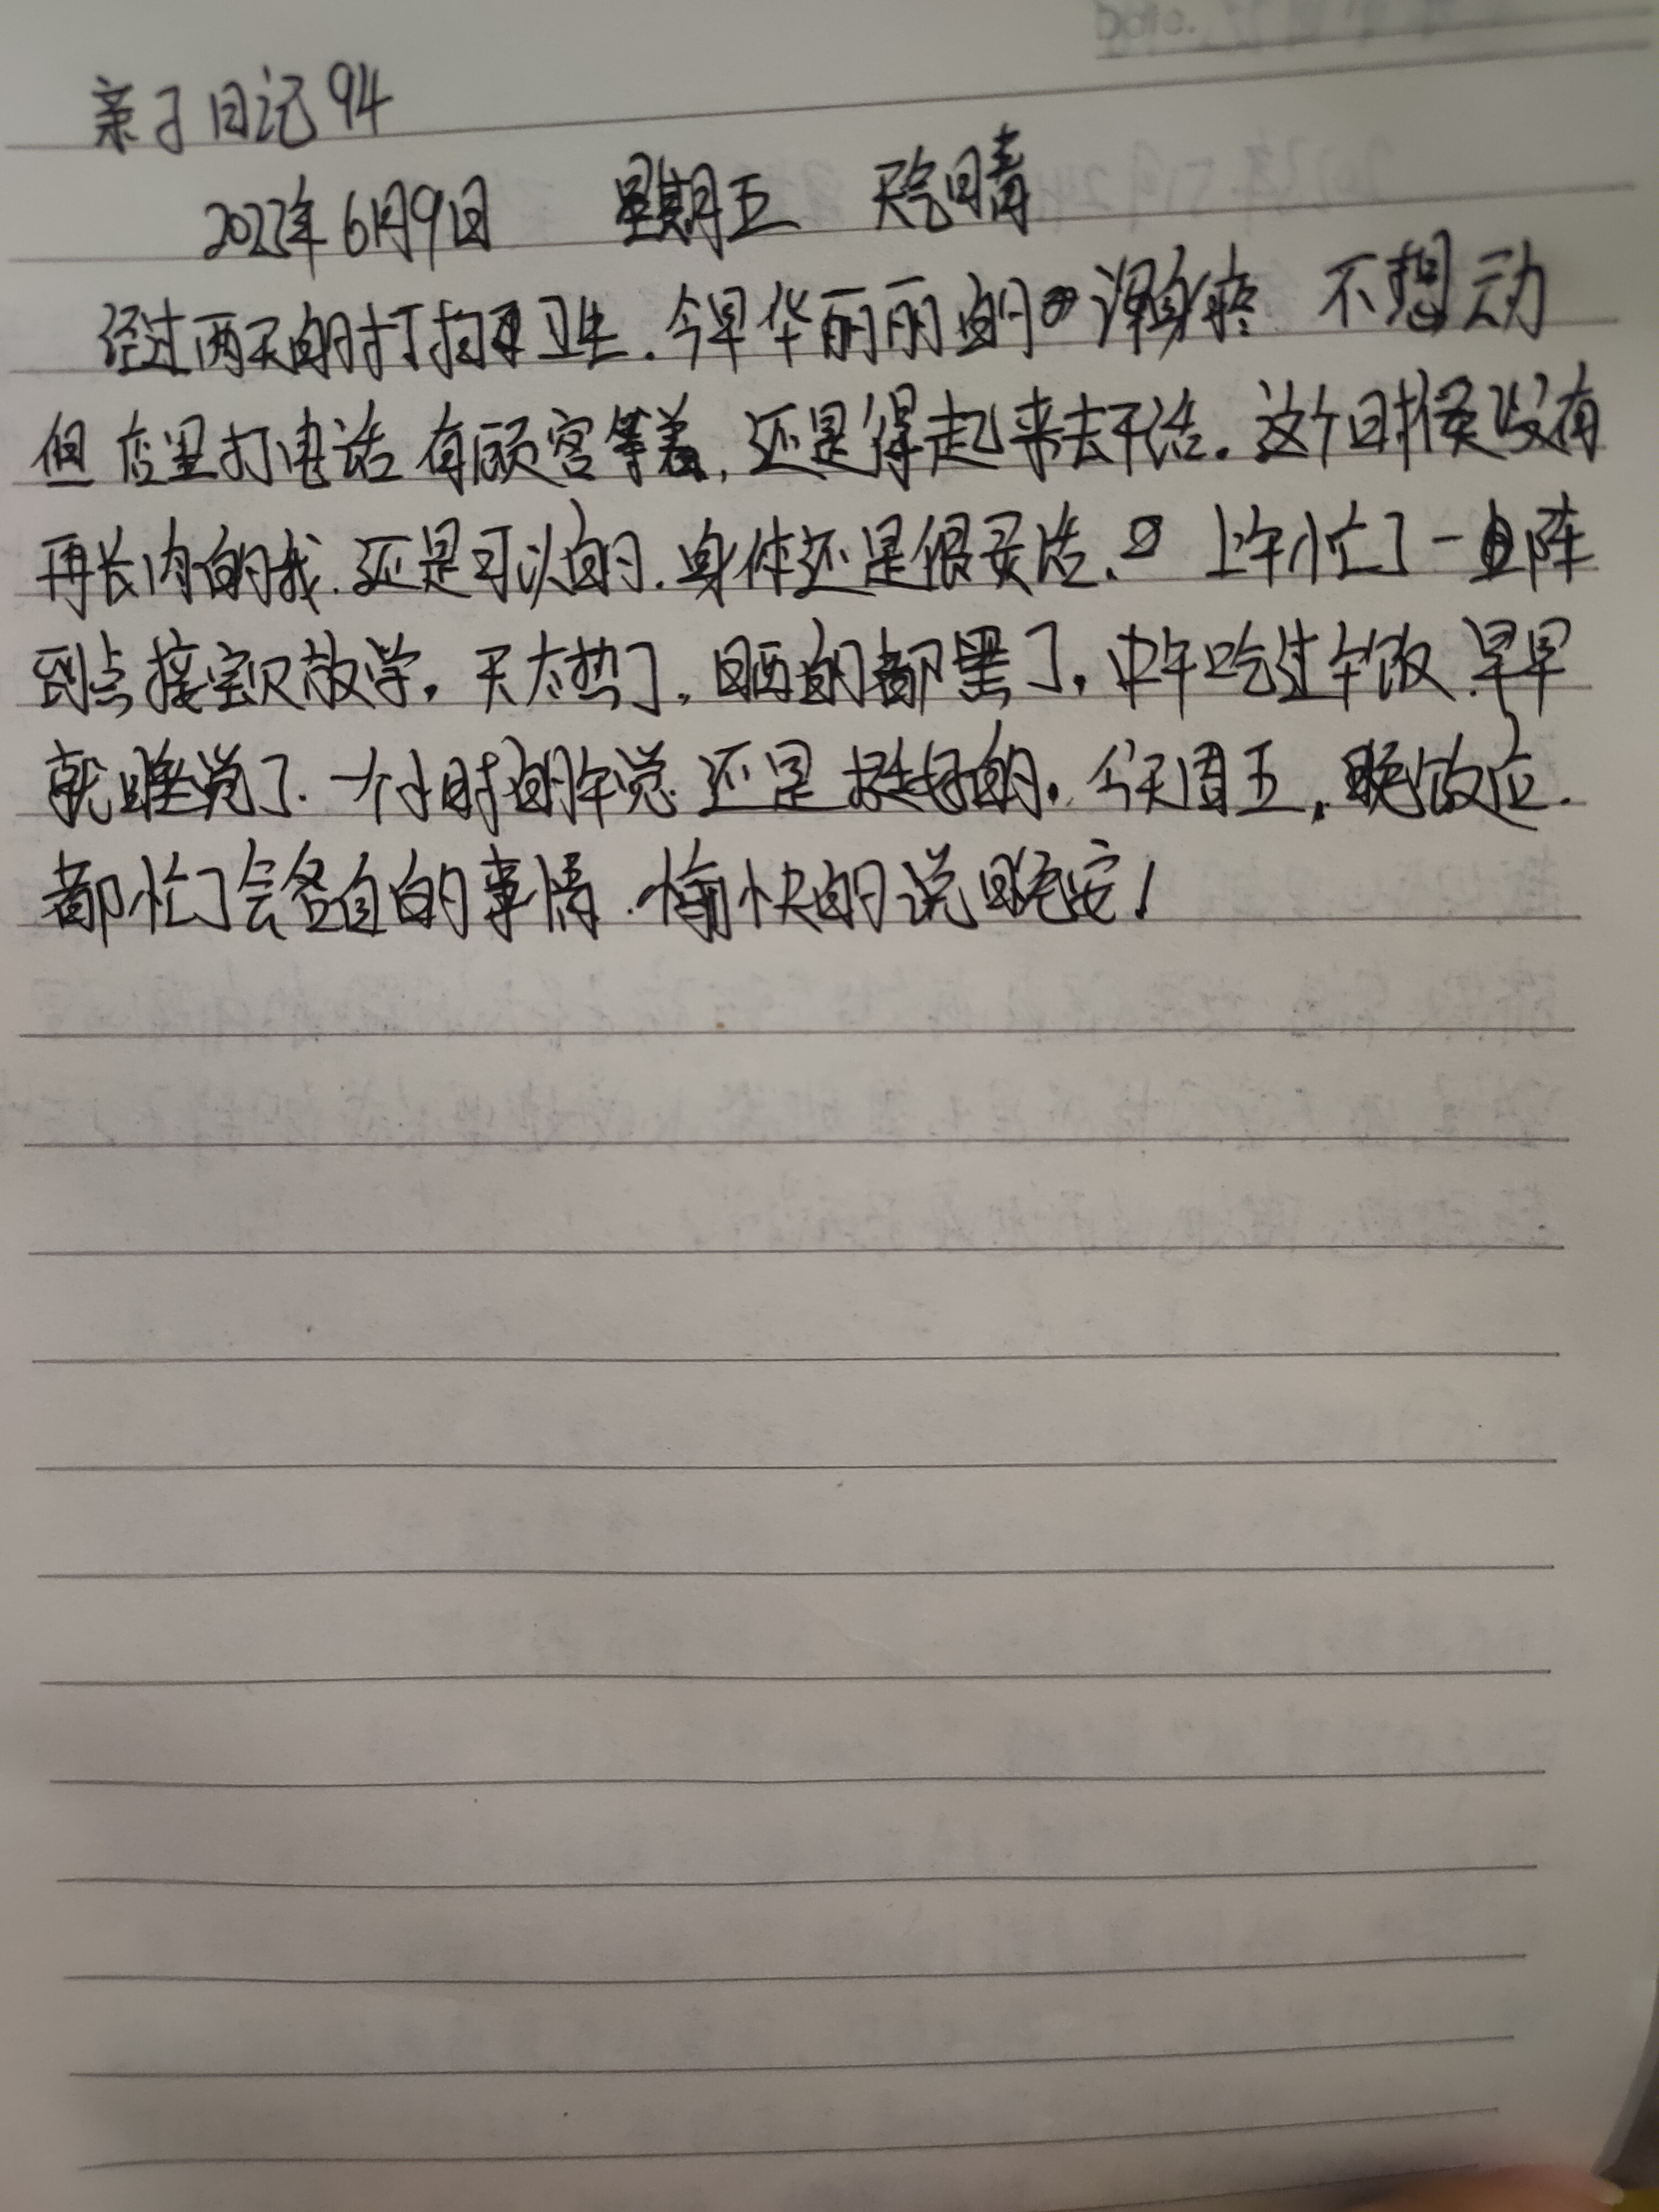 亲子日记94
2023年6月9日 星期五 天气晴
经过两天的打扫卫生.今早华丽丽的浑身疼 不想动
但店里打电话有顾客等着,还是得起来去干活.这个时候没有
再长肉的我.还是可以的.身体还是很灵活. 上午忙了一阵
到点接宝贝放学.天太热了,晒的都黑了.中午吃过午饭早早
就睡觉了.一个小时的午觉还是挺好的.今天周五,晚饭后.
都忙了会各自的事情.愉快的说晚安!